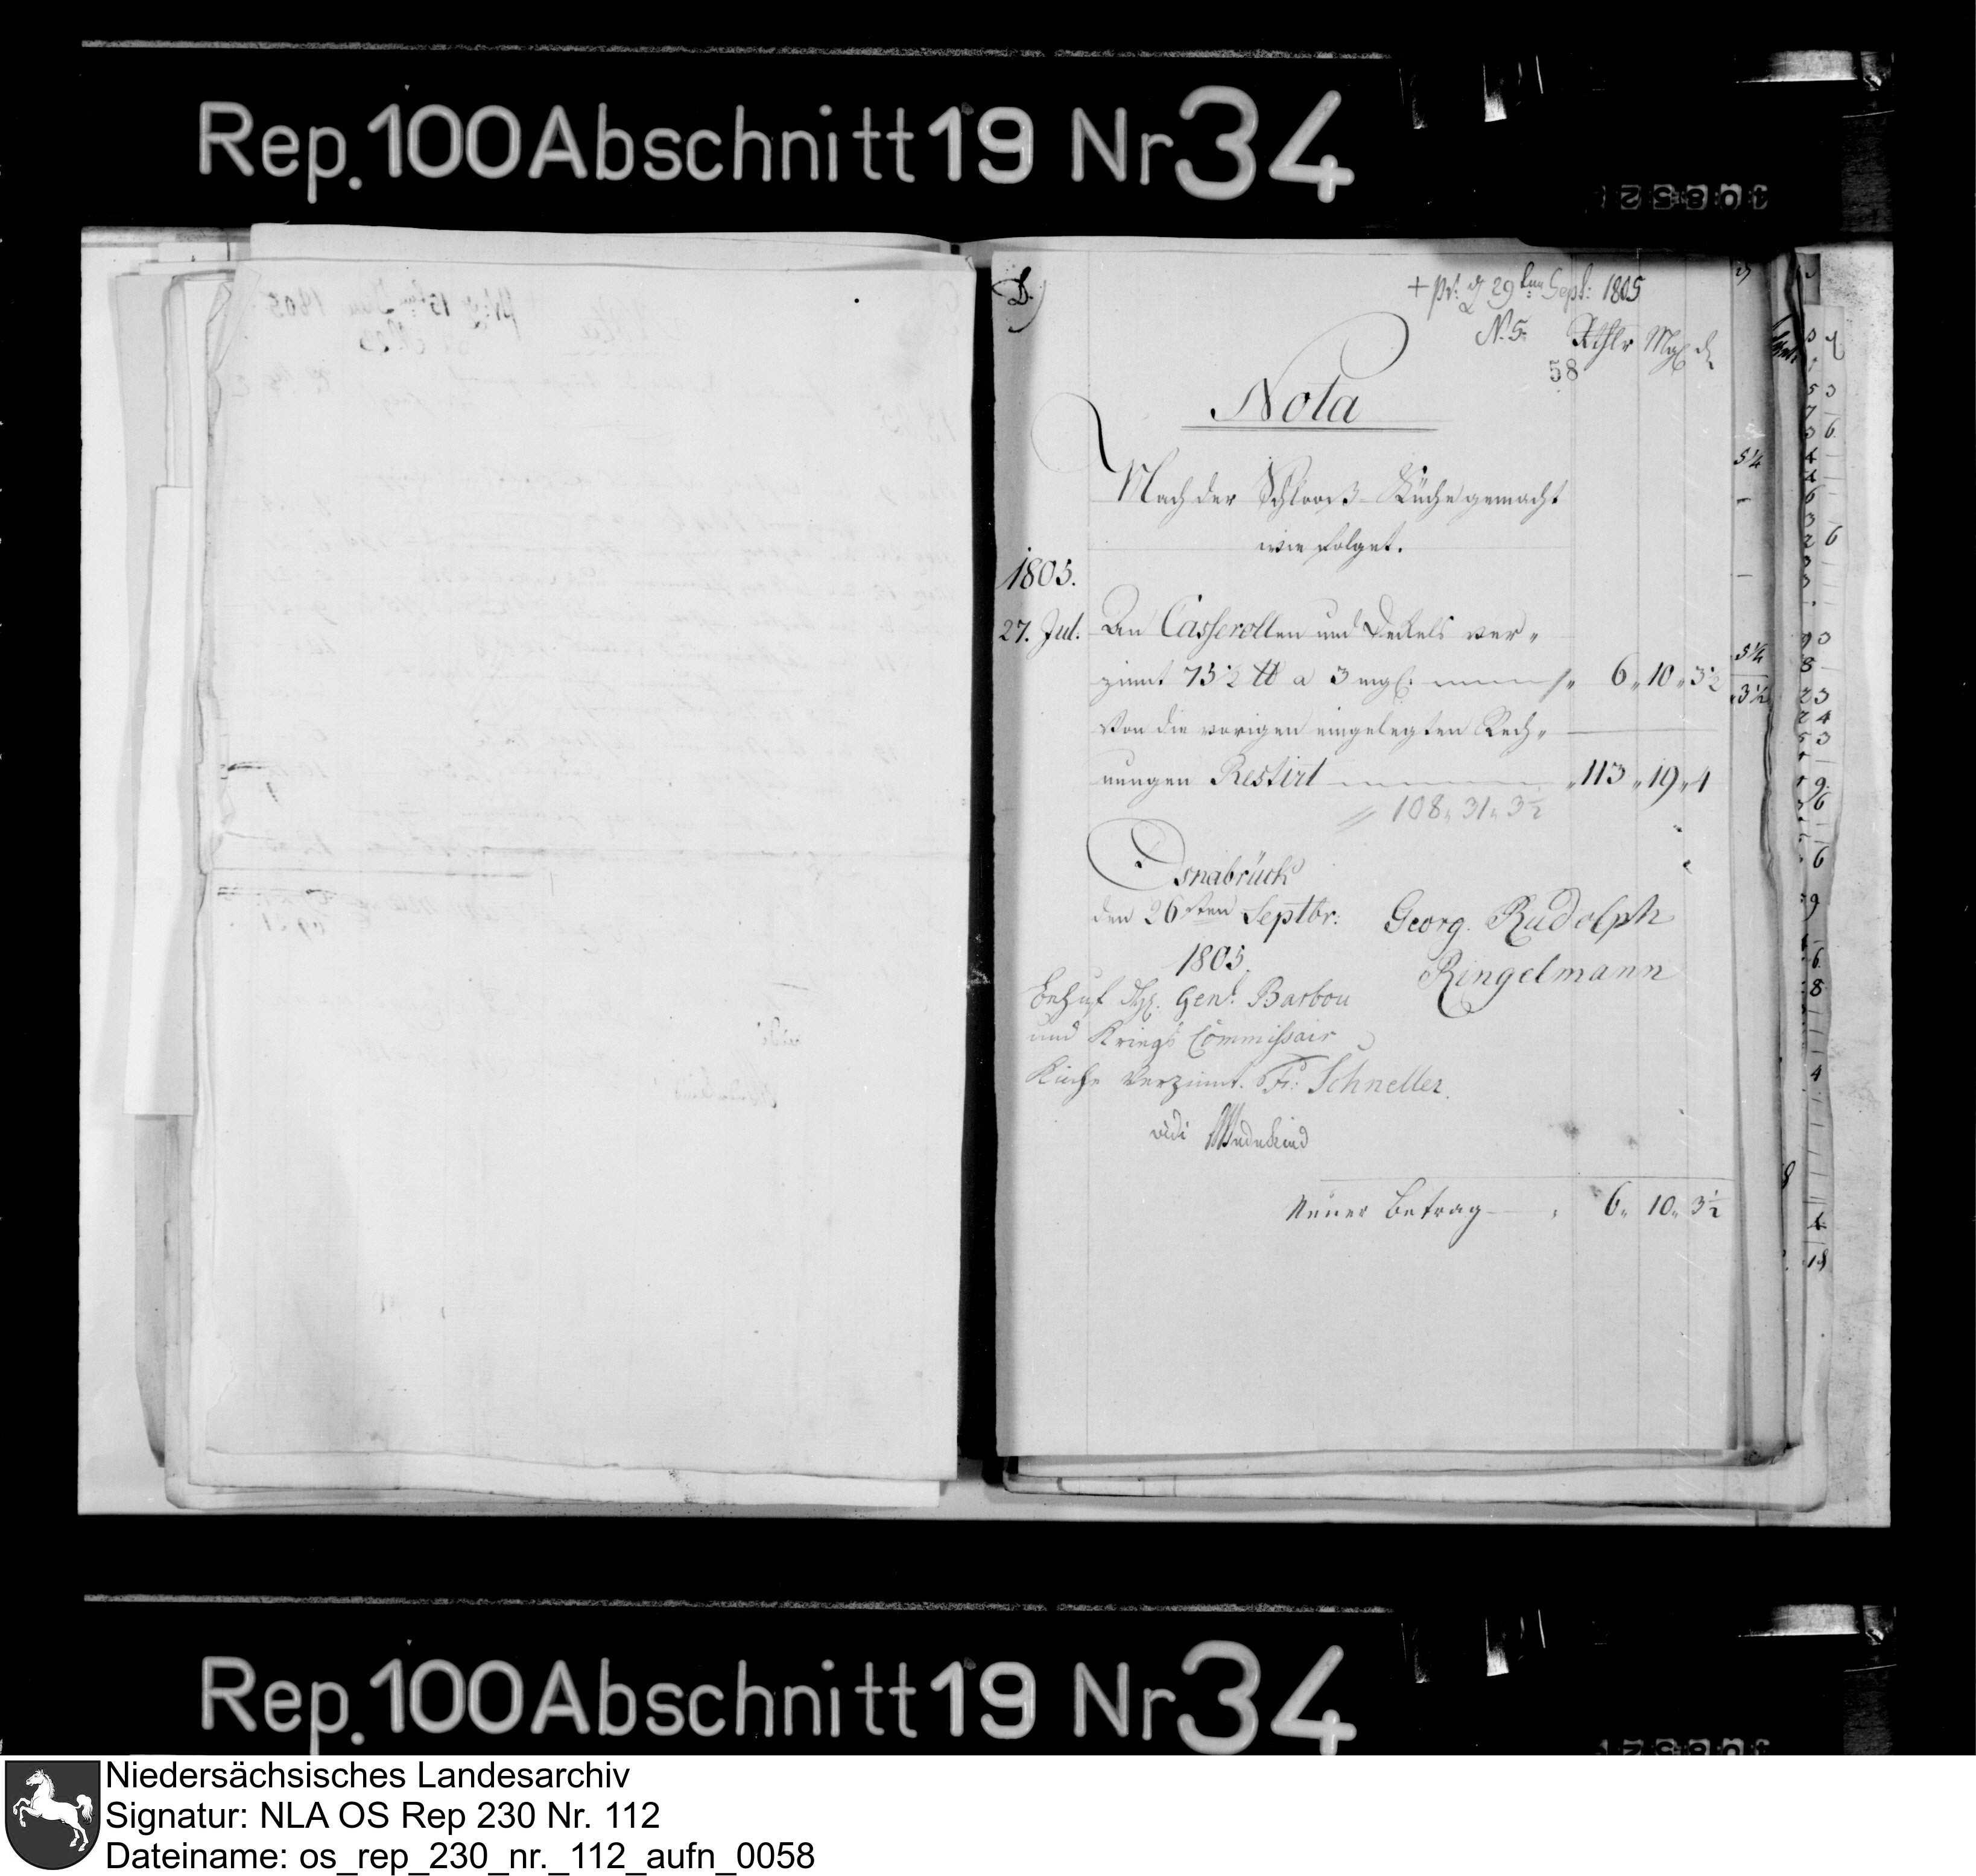 Rep. 100 Abschnitt 19 Nr 34
D.)
+ pr: d 29ten Sept: 1805
N. 5.
Rthlr Mgl d
58
Nota
Nach der Schlooß-Küche gemacht
wie folget.
1805.
27. Jul. An Casserollen und Deckels ver„
zinnt 75½ ℔ a 3 mgl: „ 6 „ 10 „ 3½
Von die vorigen eingelegten Rech„
nungen Restirt „ 113 „ 19 „ 4
108„ 31„ 3½
Osnabrück
den 26sten Septbr:
1805.
Georg. Rudolph
Ringelmann
Behuf H. Genl. Barbou
und Kriegs Commissair
Küche verzinnt. Fr: Schneller.
vidi Wedekind
Neuer Betrag 6„ 10„ 3½
Rep. 100 Abschnitt 19 Nr 34
Niedersächsisches Landesarchiv
Signatur: NLA OS Rep 230 Nr. 112
Dateiname: os_rep_230_nr._112_aufn_0058